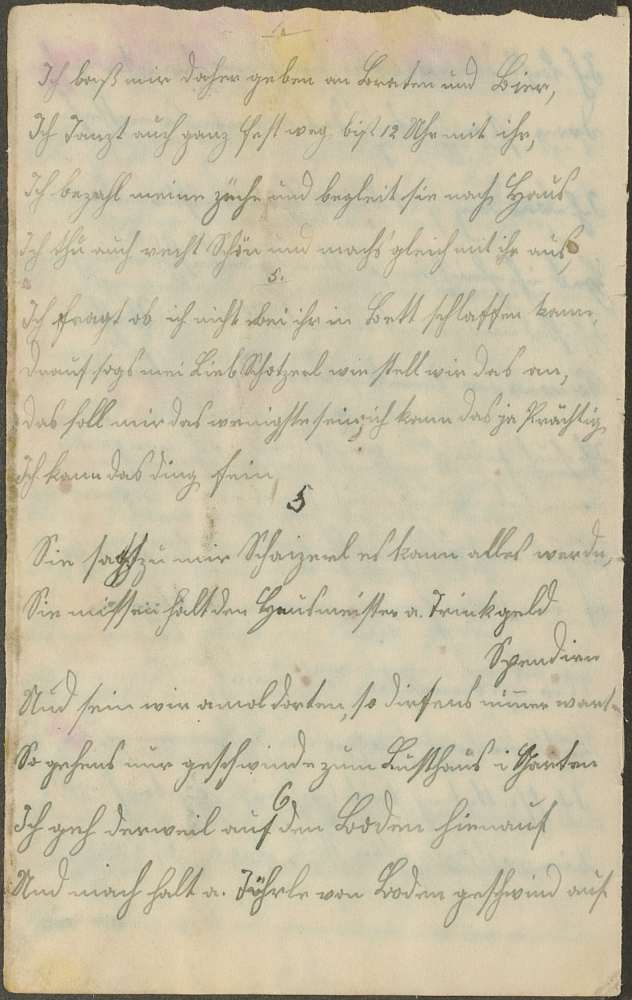 Ich laß mir daher geben an Braten und Bier,
Ich Tanzt auch ganz fest weg, biß 12 Uhr mit ihr,
Ich bezahl meine züche und begleit sie nach Haus
Ich thu auch recht Schön und machs gleich mit ihr aus,
5.
Ich fragt ob ich nicht bei ihr in Bett schlaffen kann,
Drauf sogs mei Lieb Schatzerl wie stell wir das an,
Das soll mir das wenigste sein, ich kann das ja Prächtig
Ich kann das ding fein,
5
Sie sagt zu mir Schatzerl es kann alles werdn,
Sie missen halt den Hausmeister a. Trinkgeld
Spendirn
Und sein wir amol dorten, so dirfens nimmer wart
So gehens nur geschwinde zum Lusthaus i Garten
6
Ich geh derweil auf den Boden hienauf
Und mach halt a. Thürle von Boden geschwind auf